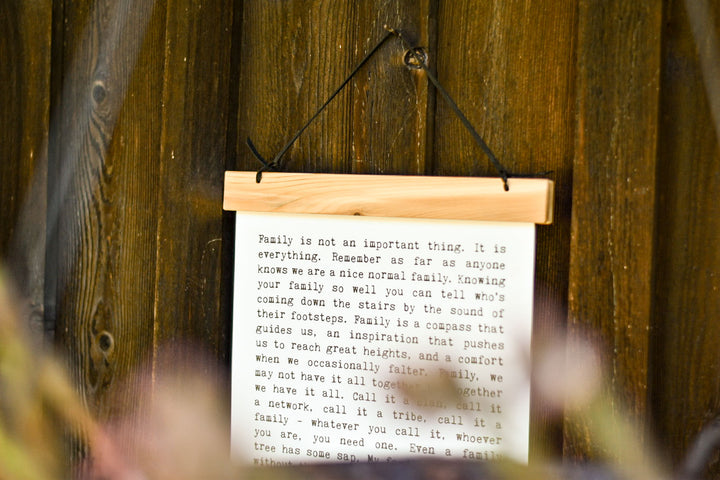 Family is not an important thing. It is
everything. Remember as far as anyone
knows we are a nice normal family. Knowing
your family so well you can tell who's
coming down the stairs by the sound of
their footsteps. Family is a compass that
guides us, an inspiration that pushes
us to reach great heights, and a comfort
when we occasionally falter. Family, we
may not have it all together but together
we have it all. Call it a clan, call it
a network, call it a tribe, call it a
family - whatever you call it, whoever
you are, you need one. Even a family
tree has some sap. My
without